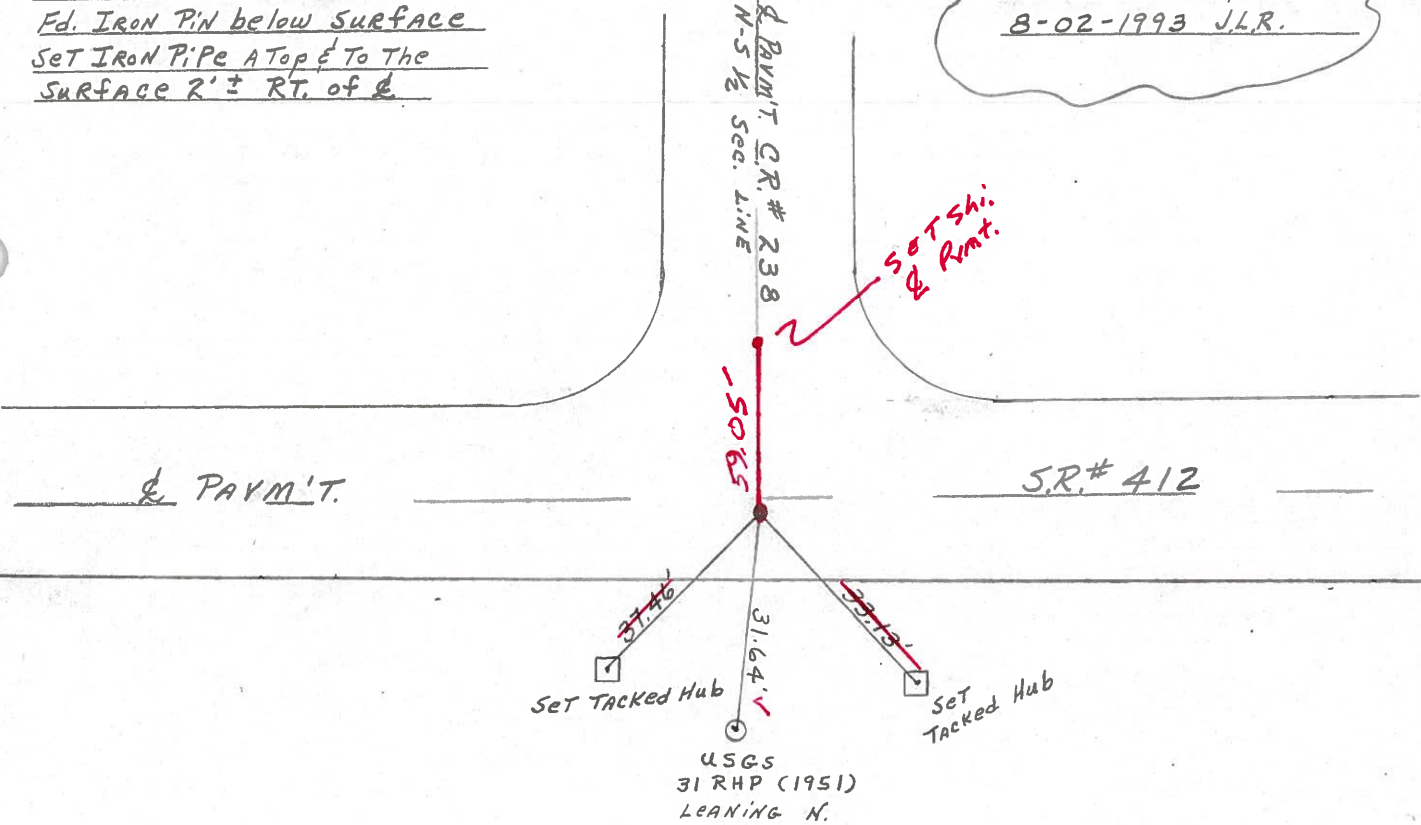 Fd. IRON PiN below SURFACE
SeT IRON PiPe A Top & To The
SURFACE 2' ± RT. of ℄
8-02-1993 J.L.R.
℄ PAVM'T. C.R. # 238
N-S ½ Sec. LiNE
SET Shi.
℄ Pvmt.
50.65
℄ PAVM'T.
S.R.# 412
37.46'
31.64'✓
33.13'
SeT TAcked Hub
SeT
TAcked Hub
USGS
31 RHP (1951)
LEANiNG N.